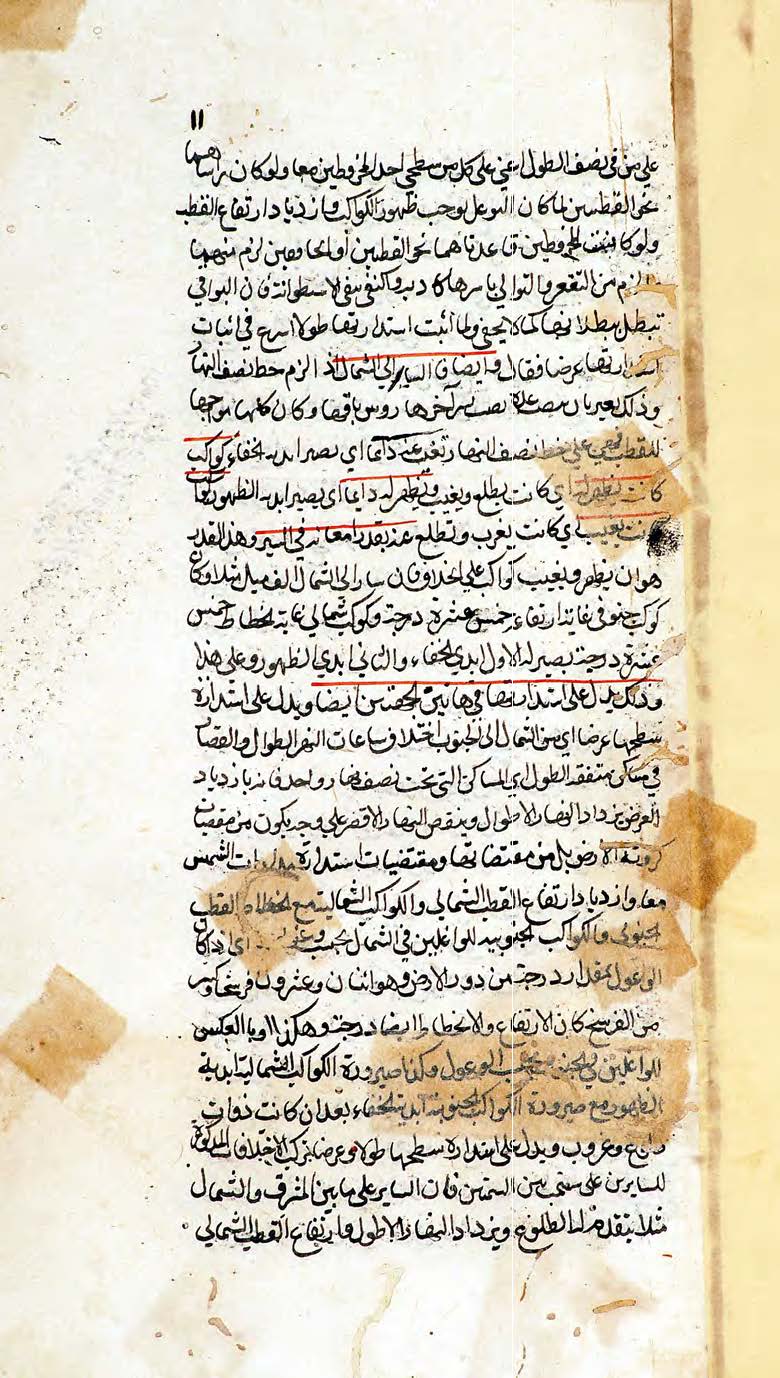 ١١
على من فى نصف الطول اعنى على كل من سطحى احد المخروطين معا ولو كان رأساهما
نحو القطبين لما كان التوغل يوجب ظهور الكواكب وازدياد ارتفاع القطب
ولو كانا المخروطين قاعدتاهما نحو القطبين أو لزم منهما
لزم من التقعر والتوالى باسرها واكتفى بنفى الاسطوانة فان البواقى
تبطل ببطلانها كما لا يخفى ولما أثبت استدارتها طولا اسرع فى اثبات
استدارتها عرضا فقال وايضا فالساير الى الشمال اذا لزم خط نصف النهار
وذلك آخرها وكان
للقطب على خط نصف النهار تغيب عنه دائما اى يصير ابدية الخفاء كواكب
كانت تظهر له اى كانت يطلع ويغيب وتظهر له دائما اى يصير ابدية الظهور
كانت تغيب اى كانت يغرب وتطلع عنه بقدر امعانه فى السير وهذا القدر
هو ان يظهر ويغيب كواكب على الخلاف فان سار الى الشمال الف ميل مثلا وكان
كوكب جنوبى غاية ارتفاعه خمس عشرة درجة وكوكب شمالى غاية انحطاطه خمس
عشرة درجة يصير له الاول ابدى الخفاء والثانى ابدى الظهور وعلى هذا
وذلك يدل على استدارتها فى هاتين الجهتين ايضا ويدل على استدارة
سطحها عرضا اى من الشمال الى الجنوب اختلاف ساعات النهر الطوال والقصار
فى مساكن متفقة الطول اى المساكن التى تحت نصف نهار واحد فانه بازدياد
العرض يزداد النهار الاطوال وينقص النهار الاقصر على وجه يكون من مقتضيات
كروية الارض بل من مقتضياتها ومقتضيات استدارة الشمس
معا وازدياد ارتفاع القطب الشمالى والكواكب الشمالية مع انحطاط القطب
الجنوبى والكواكب الجنوبية للواغلين فى الشمال بحسب اى اذا كان
الوغول بمقدار درجة من دور الارض وهو اثنان وعشرون فرسخا وكسر
من الفرسخ كان الارتفاع والانحطاط ايضا درجة وهكذا وبالعكس
للواغلين فى الجنوب بحسب الوغول وكذا صيرورة الكواكب الشمالية ابدية
الظهور مع صيرورة الكواكب الجنوبية ابدية الخفاء بعد ان كانت ذوات
طلوع وغروب ويدل على استدارة سطحها طولا وعرضا تركب الاختلافات المذكورة
للسايرين على سمت بين السمتين فان الساير على ما بين المشرق والشمال
مثلا يتقدم له الطلوع ويزداد النهار الاطول وارتفاع القطب الشمالى